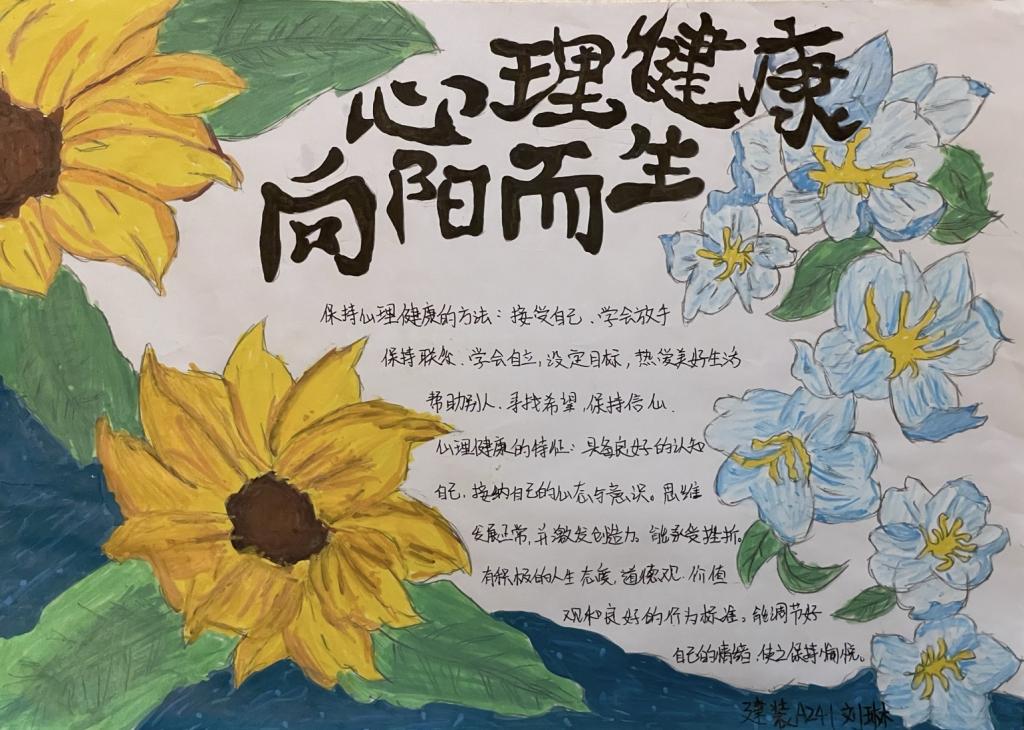 心理健康
向阳而生
保持心理健康的方法：接受自己、学会放手
保持联众、学会自立，设定目标，热爱美好生活
帮助别人、寻找希望，保持信心．
心理健康的特征：具备良好的认知
自己，接纳自己的心态与意识。思维
发展正常，并激发创造力。能承受挫折。
有积极的人生态度、道德观、价值
观和良好的行为标准。能调节好
自己的情绪，使之保持愉悦。
建装A241 刘琳